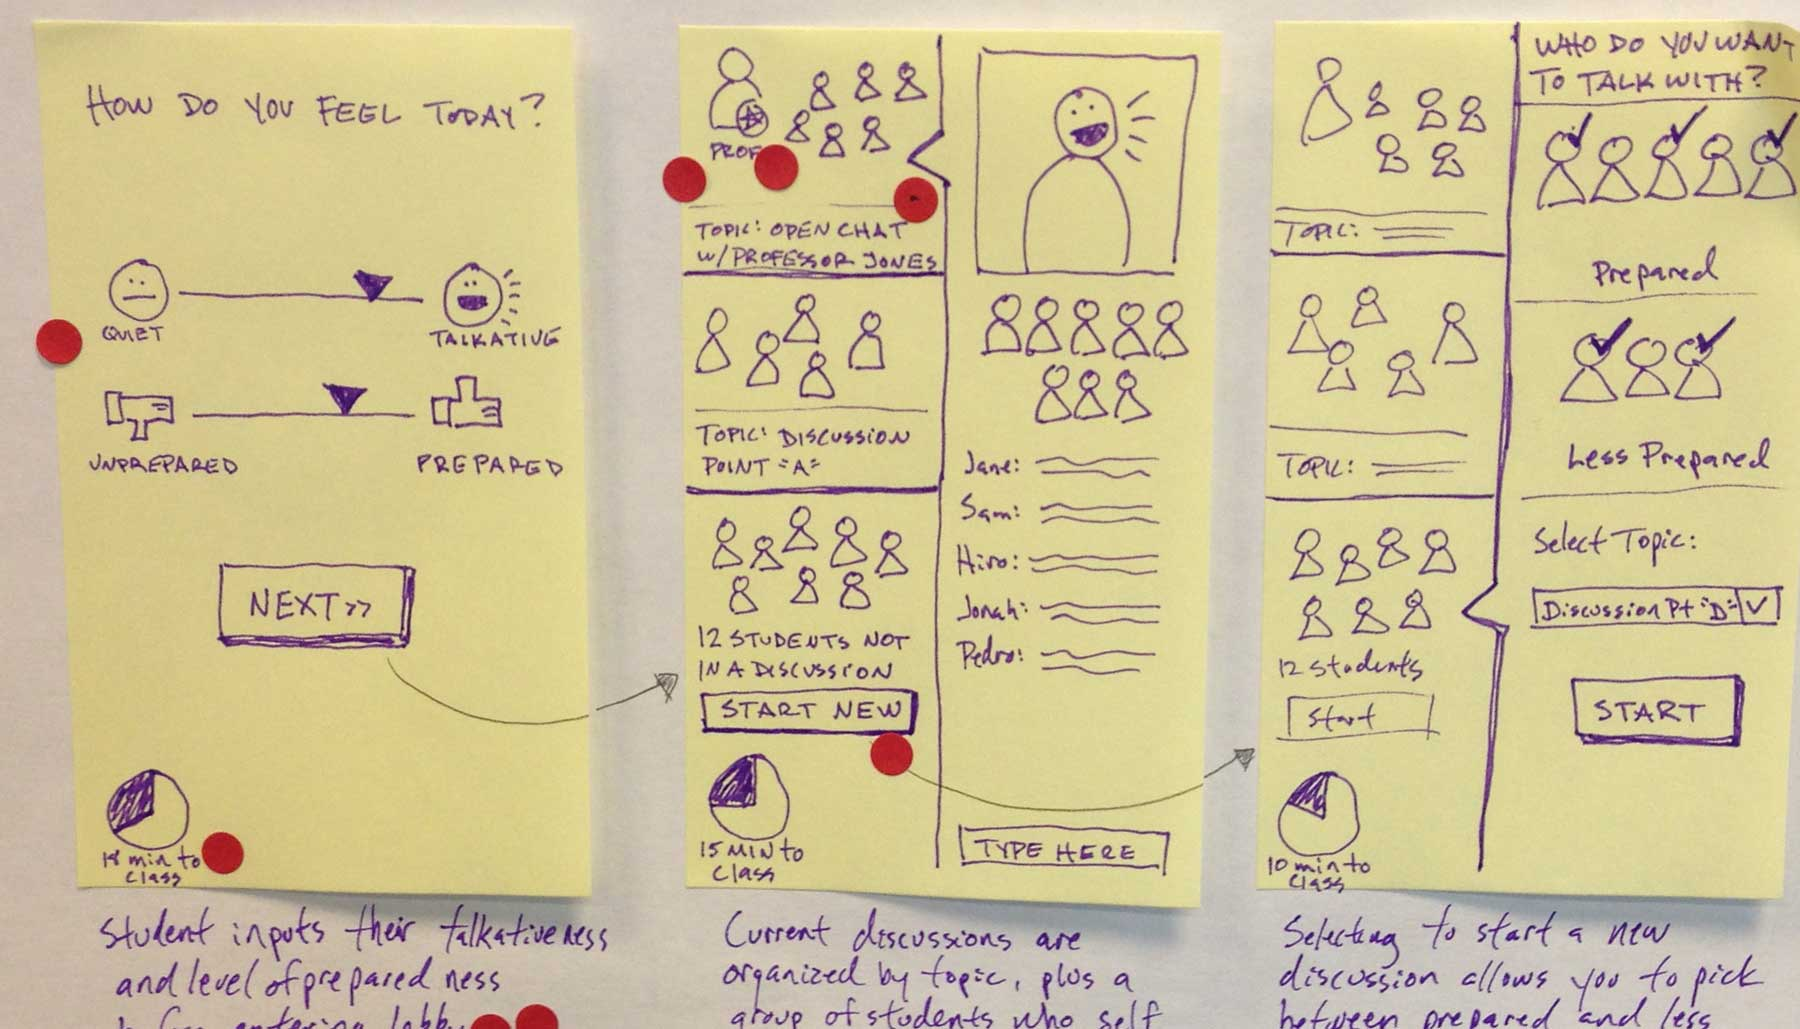 HOW DO YOU FEEL TODAY?
QUIET
TALKATIVE
UNPREPARED
PREPARED
NEXT >>
18 min to
Class
Student inputs their talkativeness
and level of prepared ness
entering lobby
PROF
TOPIC: OPEN CHAT
W/ PROFESSOR JONES
TOPIC: DISCUSSION
POINT "A"
12 STUDENTS NOT
IN A DISCUSSION
START NEW
15 MIN to
Class
Jane:
Sam:
Hiro:
Jonah:
Pedro:
TYPE HERE
Current discussions are
organized by topic, plus a
group of students who self
TOPIC:
TOPIC:
12 Students
Start
10 min to
Class
WHO DO YOU WANT
TO TALK WITH?
Prepared
Less Prepared
Select Topic:
Discussion Pt "D"
START
Selecting to start a new
discussion allows you to pick
between prepared and less